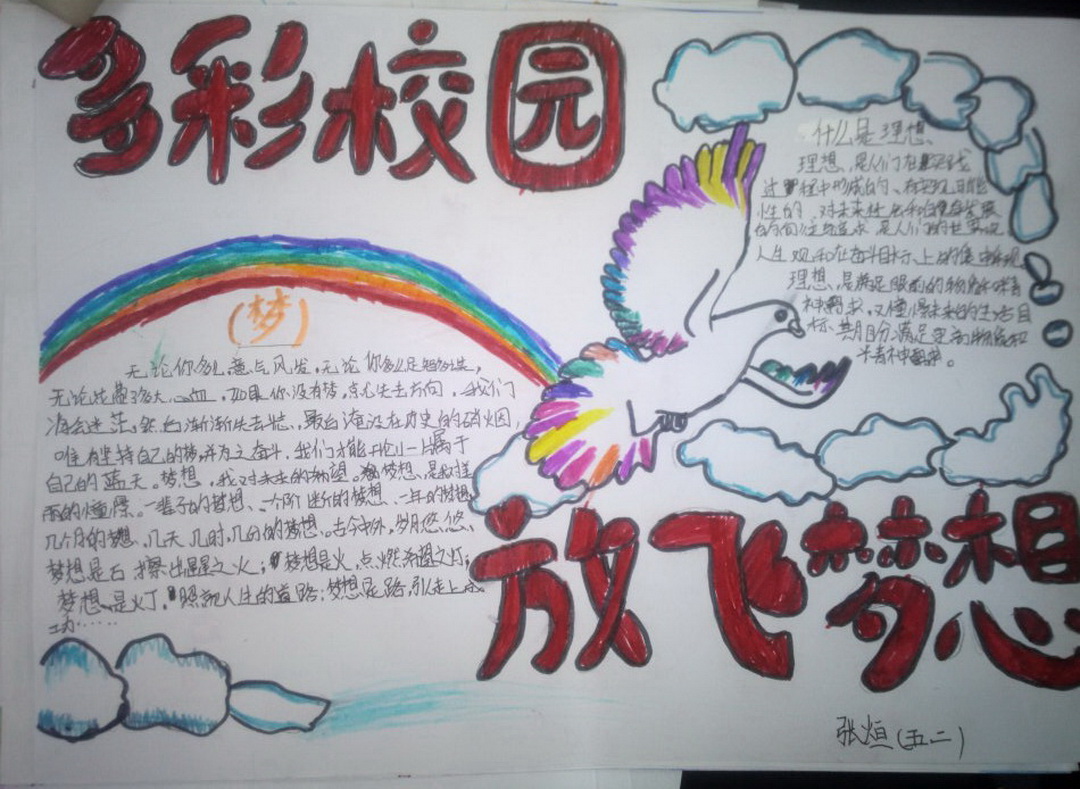 多彩校园
(梦)
无论你多么意气风发,无论你多么足智多谋,
无论花费了多大心血,如果你没有梦,就会失去方向,我们
将会迷茫,然后渐渐失去光,最后淹没在历史的硝烟,
唯有坚持自己的梦,并为之奋斗,我们才能开拓小片属于
自己的蓝天。梦想,我对未来的期望。梦想、是
而的憧憬。一辈子的梦想、一个阶断的梦想、一年的梦想
几个月的梦想、几天几时,几分的梦想。古今中外,岁月悠悠、
梦想是石 擦出星星之火;梦想是火,点燃希望之灯;
梦想、是灯,照亮人生的道路;梦想是路,引走上成
功……
什么是理想、
理想、是人们在实践
过程中形成的、有实现可能
性的、对未来社会和自身发展
的向往与追求,是人们的世界观
人生观和在奋斗目标、上的集中体现
理想、是满足眼前的物质和精
神需求,又憧憬未来的生活目
标、满足定的物质和
神需求。
放飞梦想
张烜(五二)